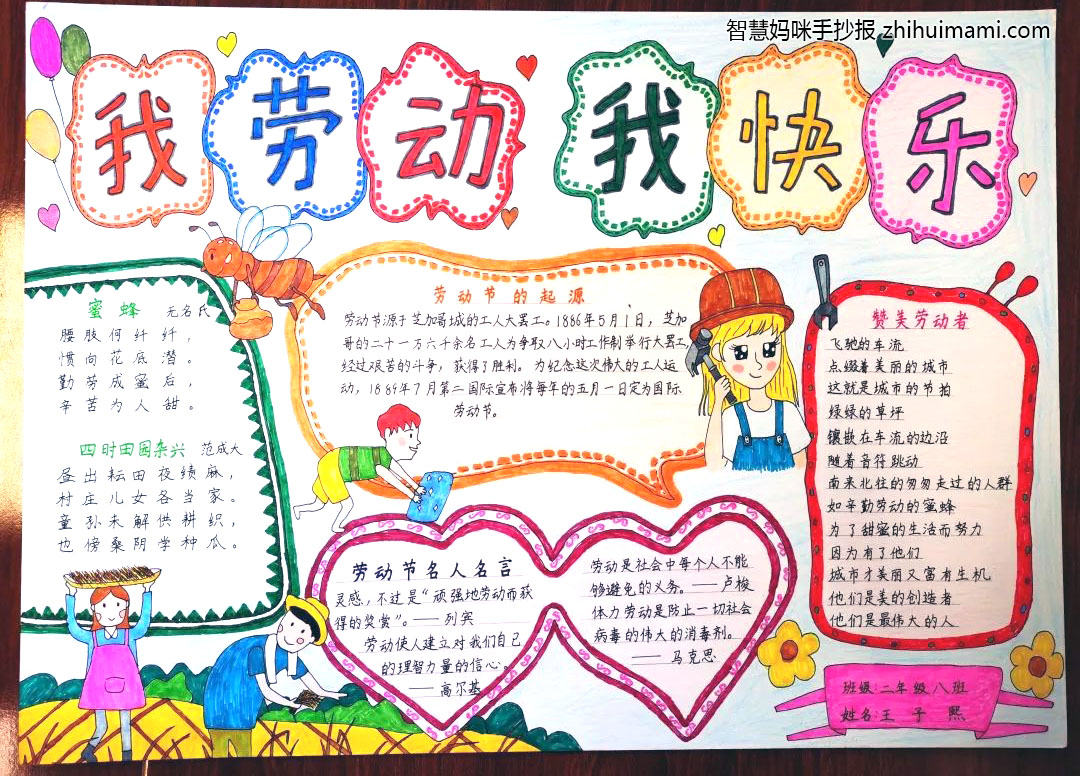 智慧妈咪手抄报 zhihuimami.com
我劳动 我快乐
蜜蜂 无名氏
腰肢何纤纤，
惯向花底潜。
勤劳成蜜后，
辛苦为人甜。
四时田园杂兴 范成大
昼出耘田夜绩麻，
村庄儿女各当家。
童孙未解供耕织，
也傍桑阴学种瓜。
劳动节的起源
劳动节源于芝加哥城的工人大罢工。1886年5月1日，芝加
哥的二十一万六千余名工人为争取八小时工作制举行大罢工，
经过艰苦的斗争，获得了胜利。为纪念这次伟大的工人运
动，1889年7月第二国际宣布将每年的五月一日定为国际
劳动节。
劳动节名人名言
灵感，不过是“顽强地劳动而获
得的奖赏”。——列宾
劳动使人建立对我们自己
的理智力量的信心。
——高尔基
劳动是社会中每个人不能
够避免的义务。——卢梭
体力劳动是防止一切社会
病毒的伟大的消毒剂。
——马克思
赞美劳动者
飞驰的车流
点缀着美丽的城市
这就是城市的节拍
绿绿的草坪
镶嵌在车流的边沿
随着音符跳动
南来北往的匆匆走过的人群
如辛勤劳动的蜜蜂
为了甜蜜的生活而努力
因为有了他们
城市才美丽又富有生机
他们是美的创造者
他们是最伟大的人
班级：二年级八班
姓名：王子熙